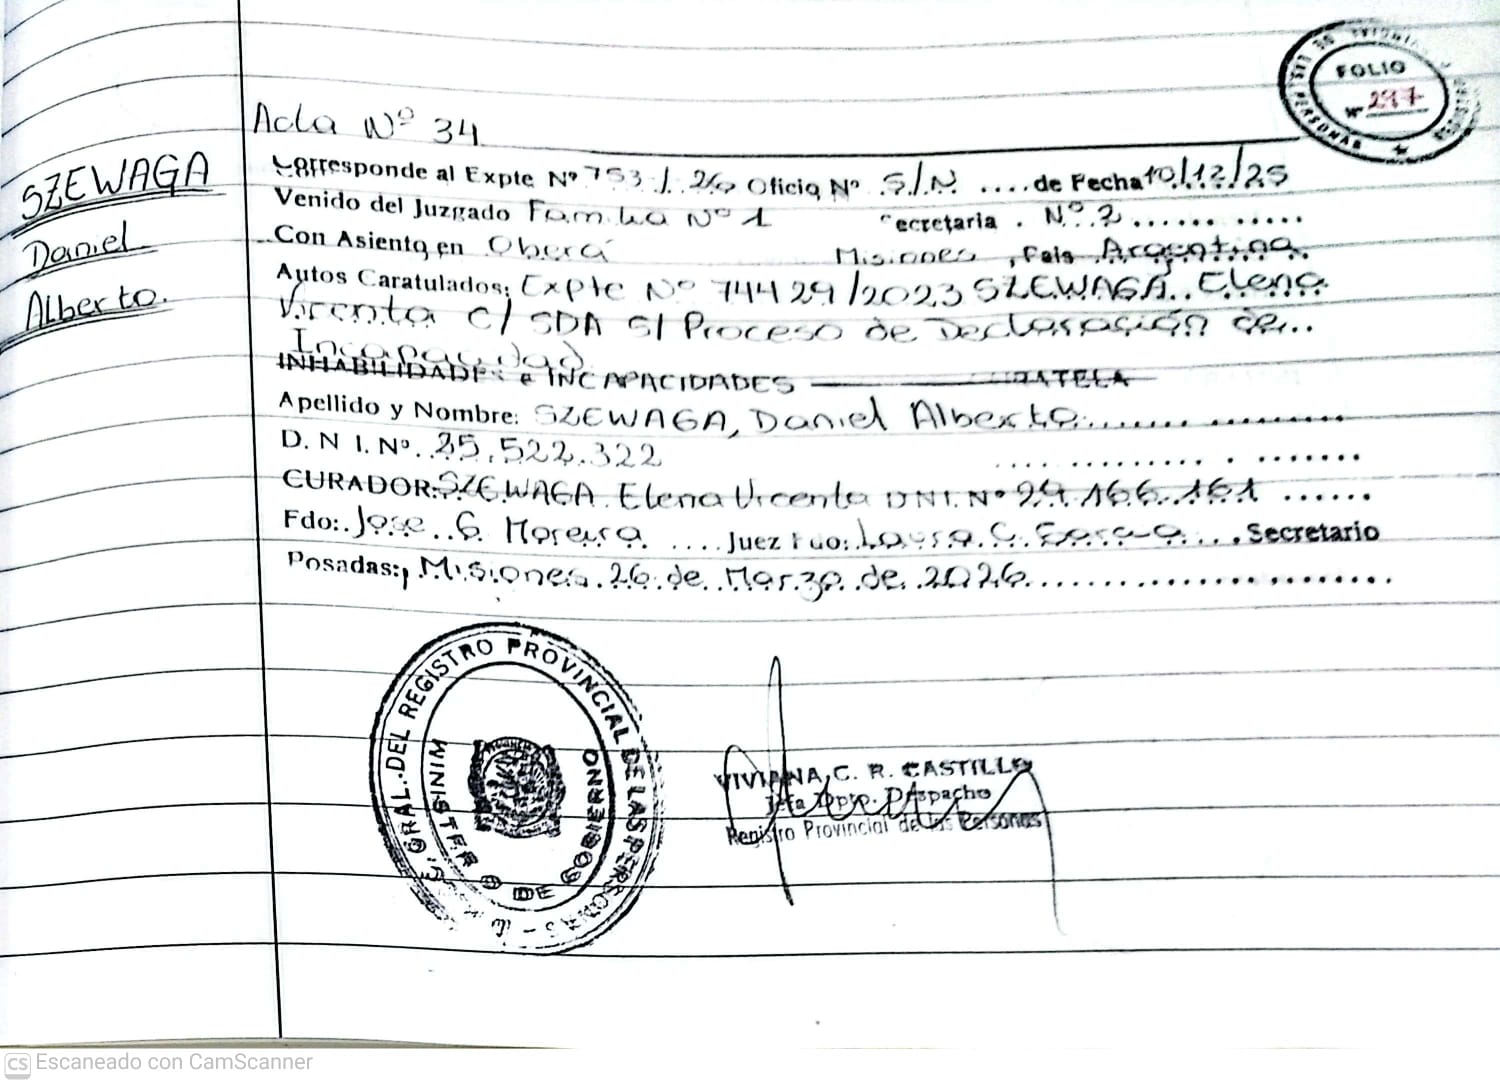 FOLIO
Nº 297
Acta Nº 34
SZEWAGA
Daniel
Alberto.
Corresponde al Expte Nº 753 / 26 Oficio Nº S/N. .... de Fecha 10/12/25
Venido del Juzgado Familia Nº 1 Secretaria . Nº 2 ...... .....
Con Asiento en Oberá Misiones, Pais Argentina.
Autos Caratulados: Expte Nº 74429/2023 SZEWAGA.. Elena
Vicenta C/ SDA S/ Proceso de Declaración de...
Incapacidad
INHABILIDADES e INCAPACIDADES CURATELA
Apellido y Nombre: SZEWAGA, Daniel Alberto.
D. N I. Nº. 25.522.322
CURADOR: SZEWAGA Elena Vicenta DNI. Nº 24.166.161 ......
Fdo:. Jose.. G. Moreira .... Juez Fdo: Laura. C. ... . Secretario
Posadas:, Misiones. 26. de. Marzo. de. 2026.
GRAL. DEL REGISTRO PROVINCIAL DE LAS PERSONAS
MINISTERIO DE GOBIERNO
VIVIANA, C. R. CASTILLO
Jefa Dpto. Despacho
Registro Provincial de las Personas
CS Escaneado con CamScanner